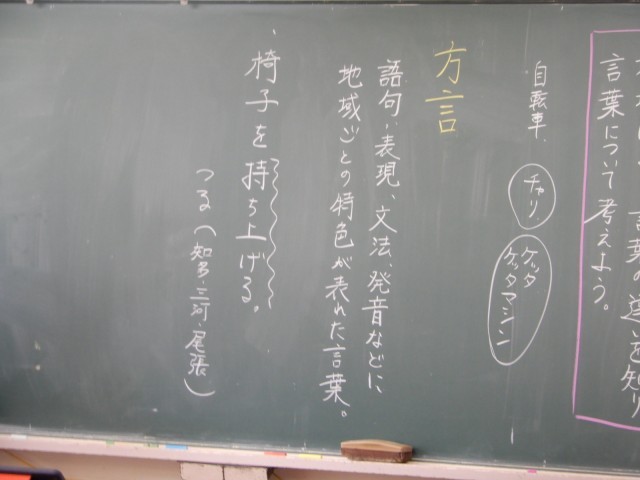 言葉の違いを知り
言葉について考えよう。
自転車、
チャリ
ケッタ
ケッタマシン
方言
語句・表現、文法、発音などに、
地域ごとの特色が表れた言葉。
・椅子を持ち上げる。
つる(知多・三河・尾張)